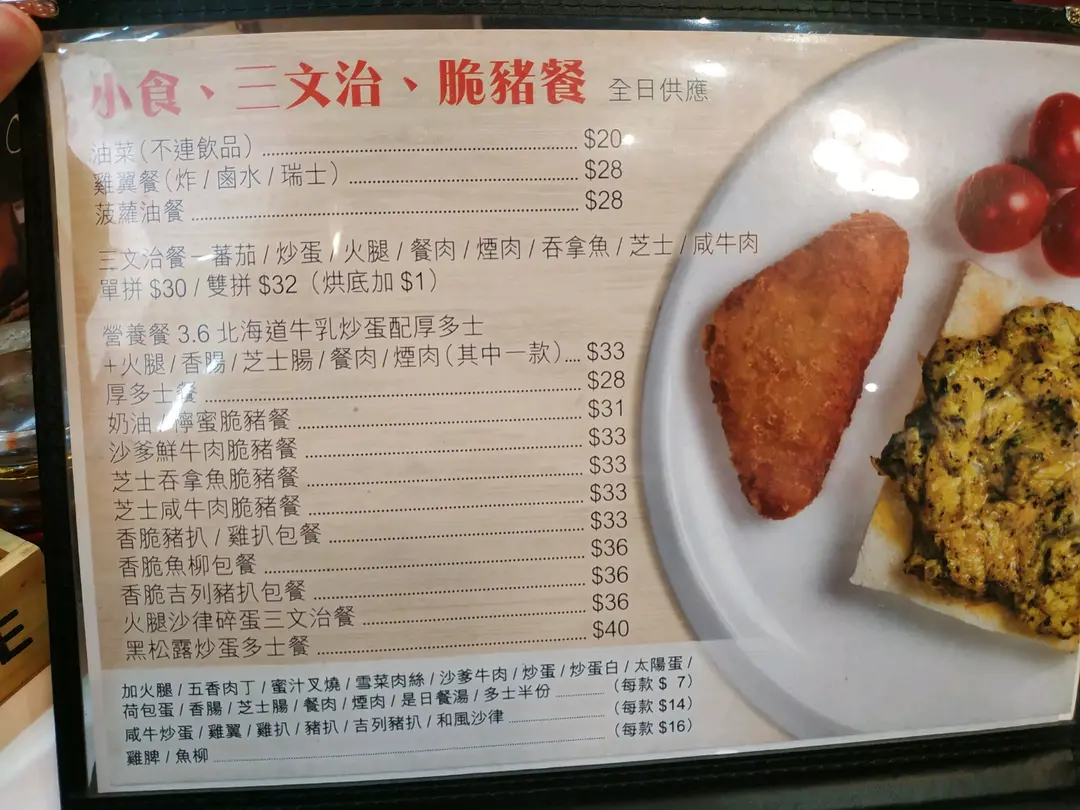 小食、三文治、脆豬餐 全日供應
油菜(不連飲品) $20
雞翼餐(炸/鹵水/瑞士) $28
菠蘿油餐 $28
三文治餐－蕃茄/炒蛋/火腿/餐肉/煙肉/吞拿魚/芝士/咸牛肉
單拼 $30/雙拼 $32（烘底加 $1）
營養餐 3.6 北海道牛乳炒蛋配厚多士
+火腿/香腸/芝士腸/餐肉/煙肉(其中一款) $33
厚多士餐 $28
奶油/檸蜜脆豬餐 $31
沙爹鮮牛肉脆豬餐 $33
芝士吞拿魚脆豬餐 $33
芝士咸牛肉脆豬餐 $33
香脆豬扒/雞扒包餐 $33
香脆魚柳包餐 $36
香脆吉列豬扒包餐 $36
火腿沙律碎蛋三文治餐 $36
黑松露炒蛋多士餐 $40
加火腿/五香肉丁/蜜汁叉燒/雪菜肉絲/沙爹牛肉/炒蛋/炒蛋白/太陽蛋/
荷包蛋/香腸/芝士腸/餐肉/煙肉/是日餐湯/多士半份 （每款 $ 7）
咸牛炒蛋/雞翼/雞扒/豬扒/吉列豬扒/和風沙律 （每款 $14）
雞脾/魚柳 （每款 $16）
E